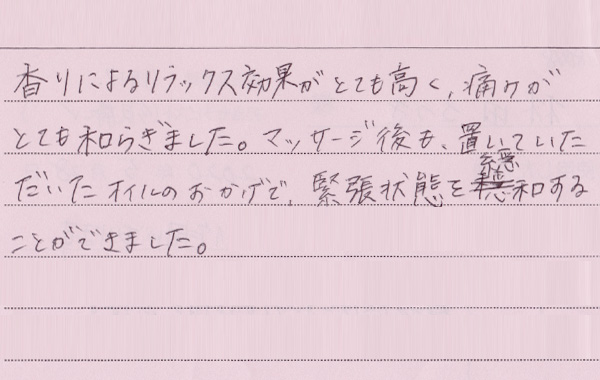 香りによるリラックス効果がとても高く、痛みが
とても和らぎました。マッサージ後も、置いていた
だいたオイルのおかげで、緊張状態を緩和する
ことができました。